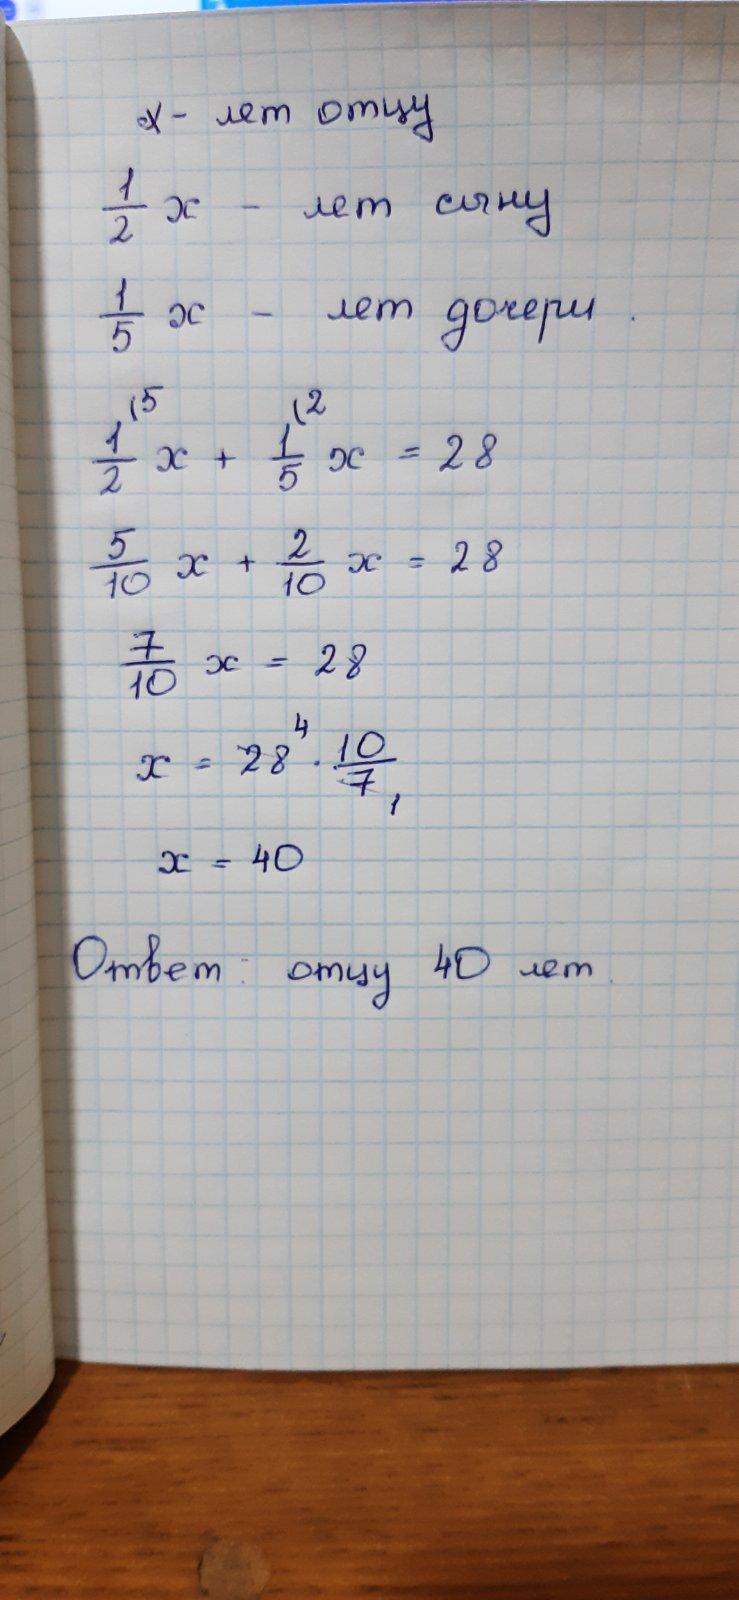 х - лет отцу
1/2 х - лет сыну
1/5 х - лет дочери.
1/2 (5 х + 1/5 (2 х = 28
5/10 х + 2/10 х = 28
7/10 х = 28
х = 28 4 · 10/7 1
х = 40
Ответ: отцу 40 лет.